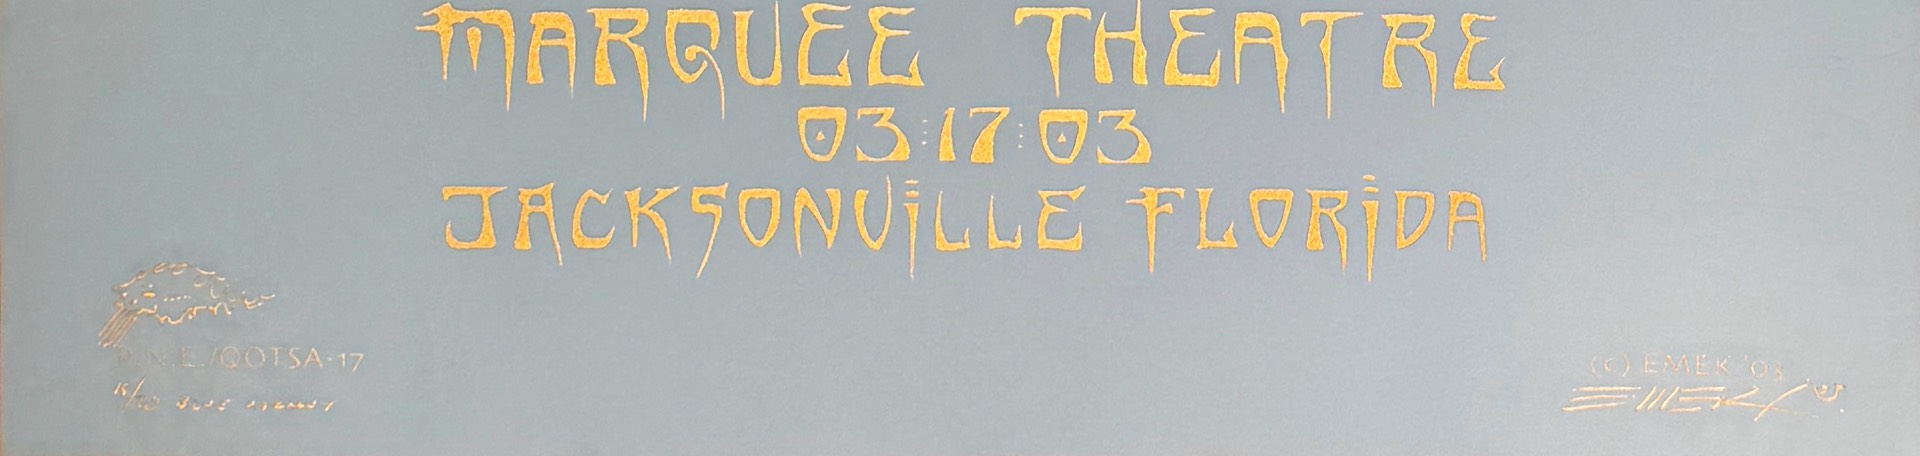 MARQUEE THEATRE
03:17:03
JACKSONVILLE FLORIDA
P.N.E./QOTSA-17
BLUE
(C) EMEK '03
EMEK '03.